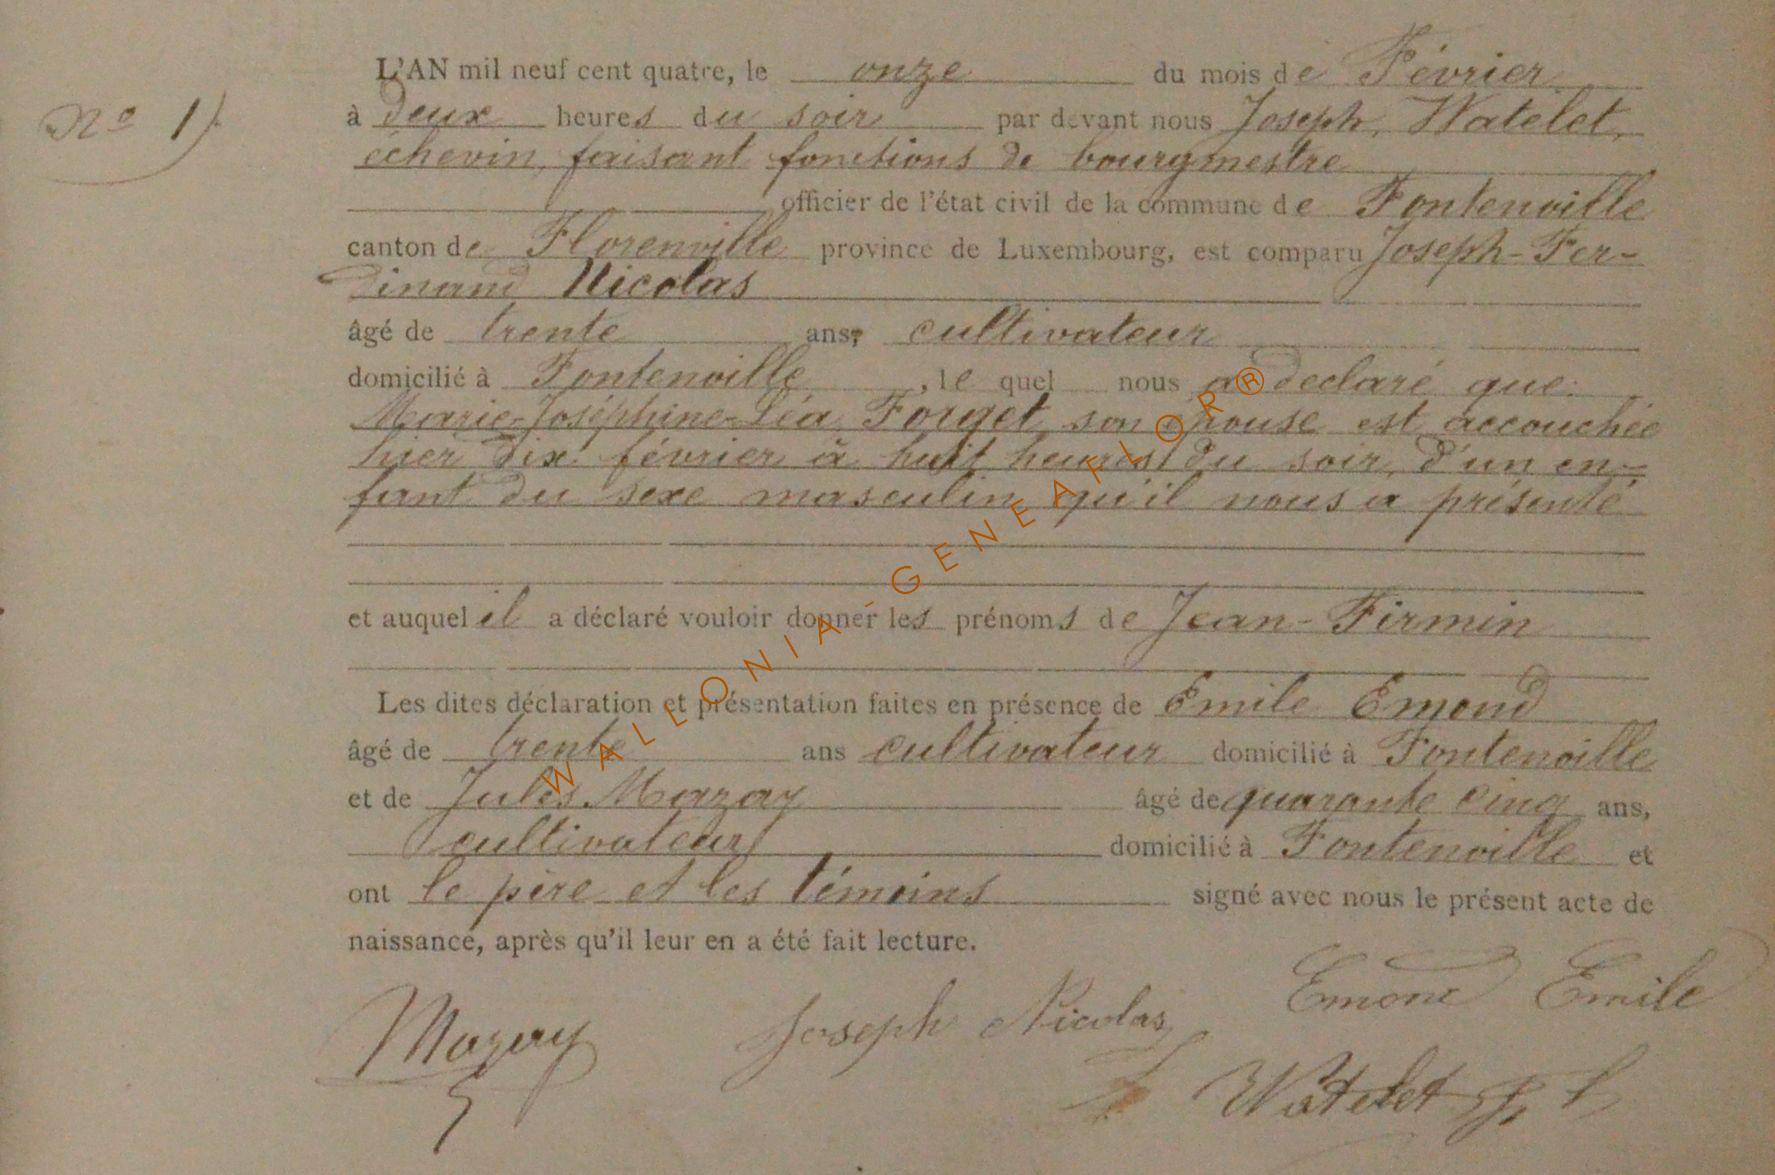 L'AN mil neuf cent quatre, le onze du mois de Février
N° 1) à deux heures du soir par devant nous Joseph, Watelet,
échevin, faisant fonctions de bourgmestre
officier de l'état civil de la commune de Fontenoille
canton de Florenville province de Luxembourg, est comparu Joseph-Fer-
dinand Nicolas
âgé de trente ans, cultivateur
domicilié à Fontenoille, le quel nous a déclaré que:
Marie-Joséphine-Léa Forget, son épouse est accouchée
hier dix février à huit heures du soir, d'un en-
fant du sexe masculin qu'il nous a présenté
et auquel il a déclaré vouloir donner les prénoms de Jean-Firmin
Les dites déclaration et présentation faites en présence de Emile Emond
âgé de trente ans cultivateur domicilié à Fontenoille
et de Jules Mazay âgé de quarante cinq ans,
cultivateur domicilié à Fontenoille et
ont le père et les témoins signé avec nous le présent acte de
naissance, après qu'il leur en a été fait lecture.
Emond Emile
Mazay Joseph Nicolas
Watelet
WALLONIA-GENEAFLOR®